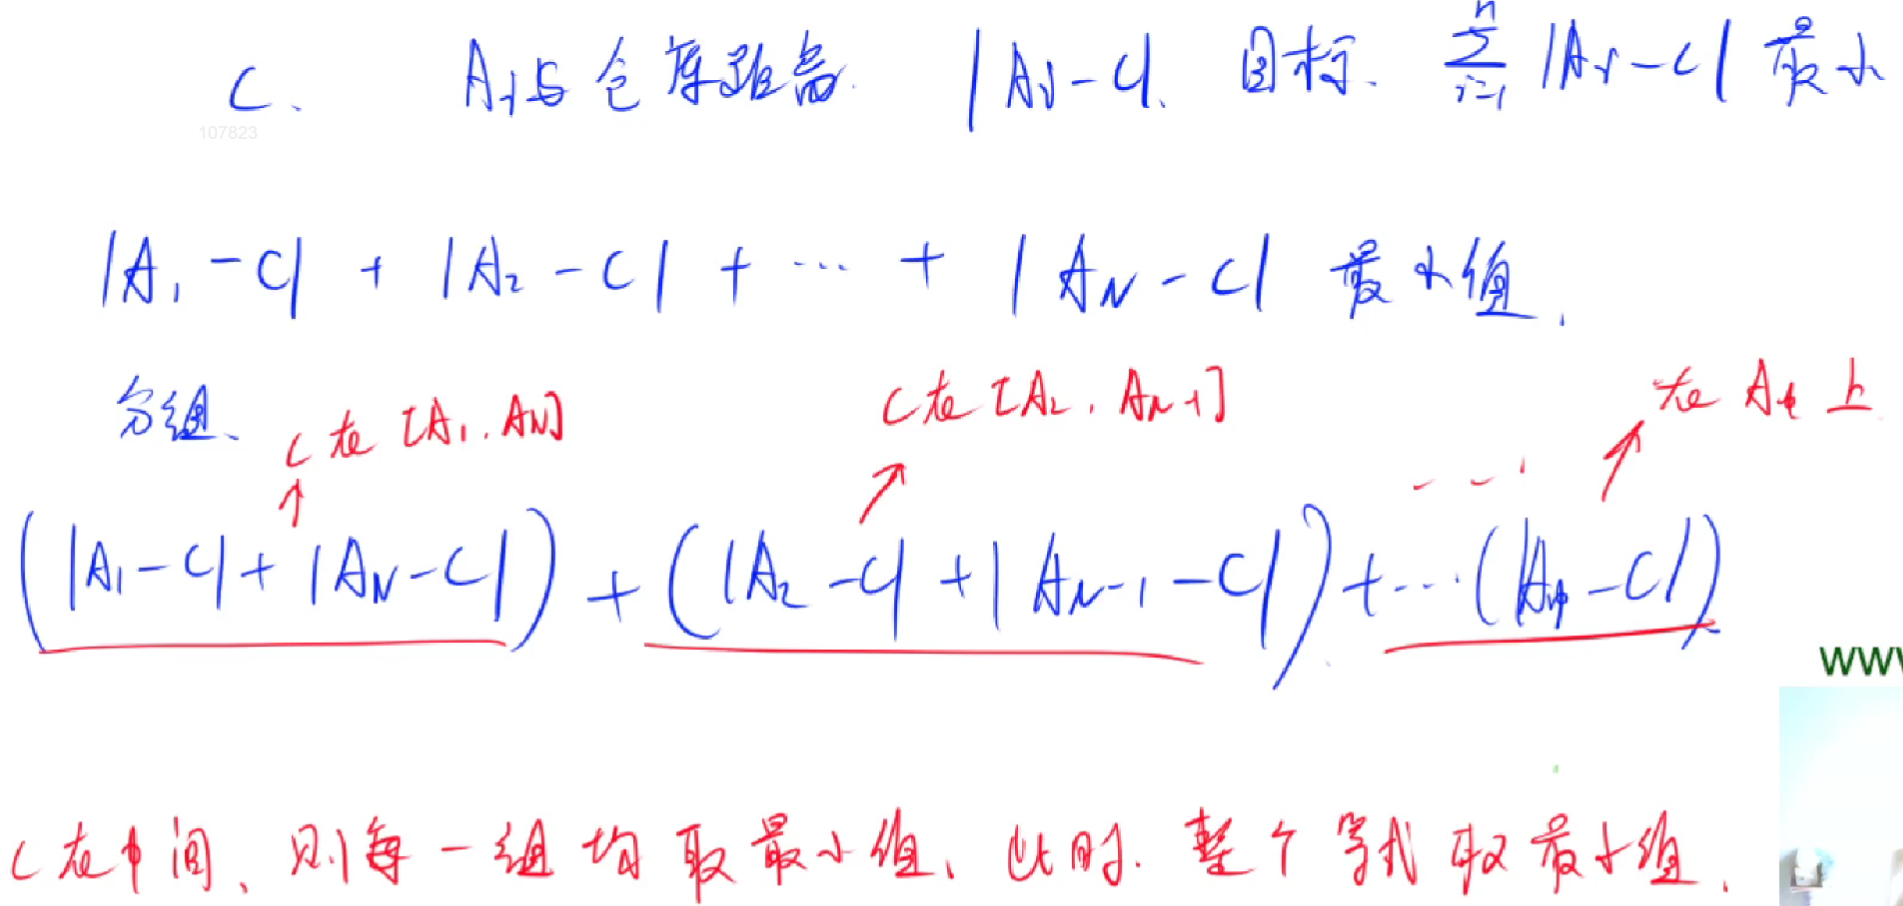 C. Ai与仓库距离. |Ai-C|. 目标. \sum_{i=1}^{n} |Ai-C| 最小
107823
|A₁-C| + |A₂-C| + … + |A_N-C| 最小值.
分组、 C在[A₁,A_N] C在[A₂,A_{N-1}] … 在A中上
(|A₁-C|+|A_N-C|)+(|A₂-C|+|A_{N-1}-C|)+…(|A中-C|)
www
C在中间、则每一组均取最小值、此时.整个等式取最小值.